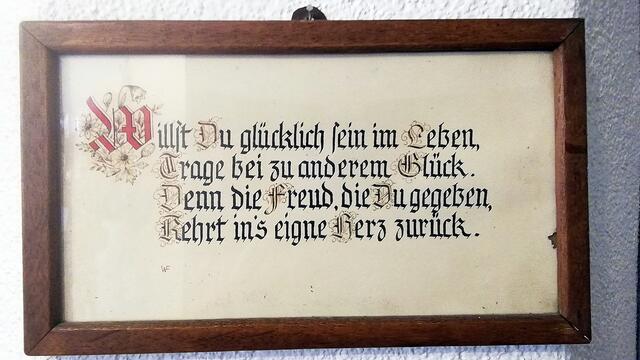 Willst Du glücklich sein im Leben,
Trage bei zu anderem Glück.
Denn die Freud, die Du gegeben,
Kehrt in's eigne Herz zurück.
WF